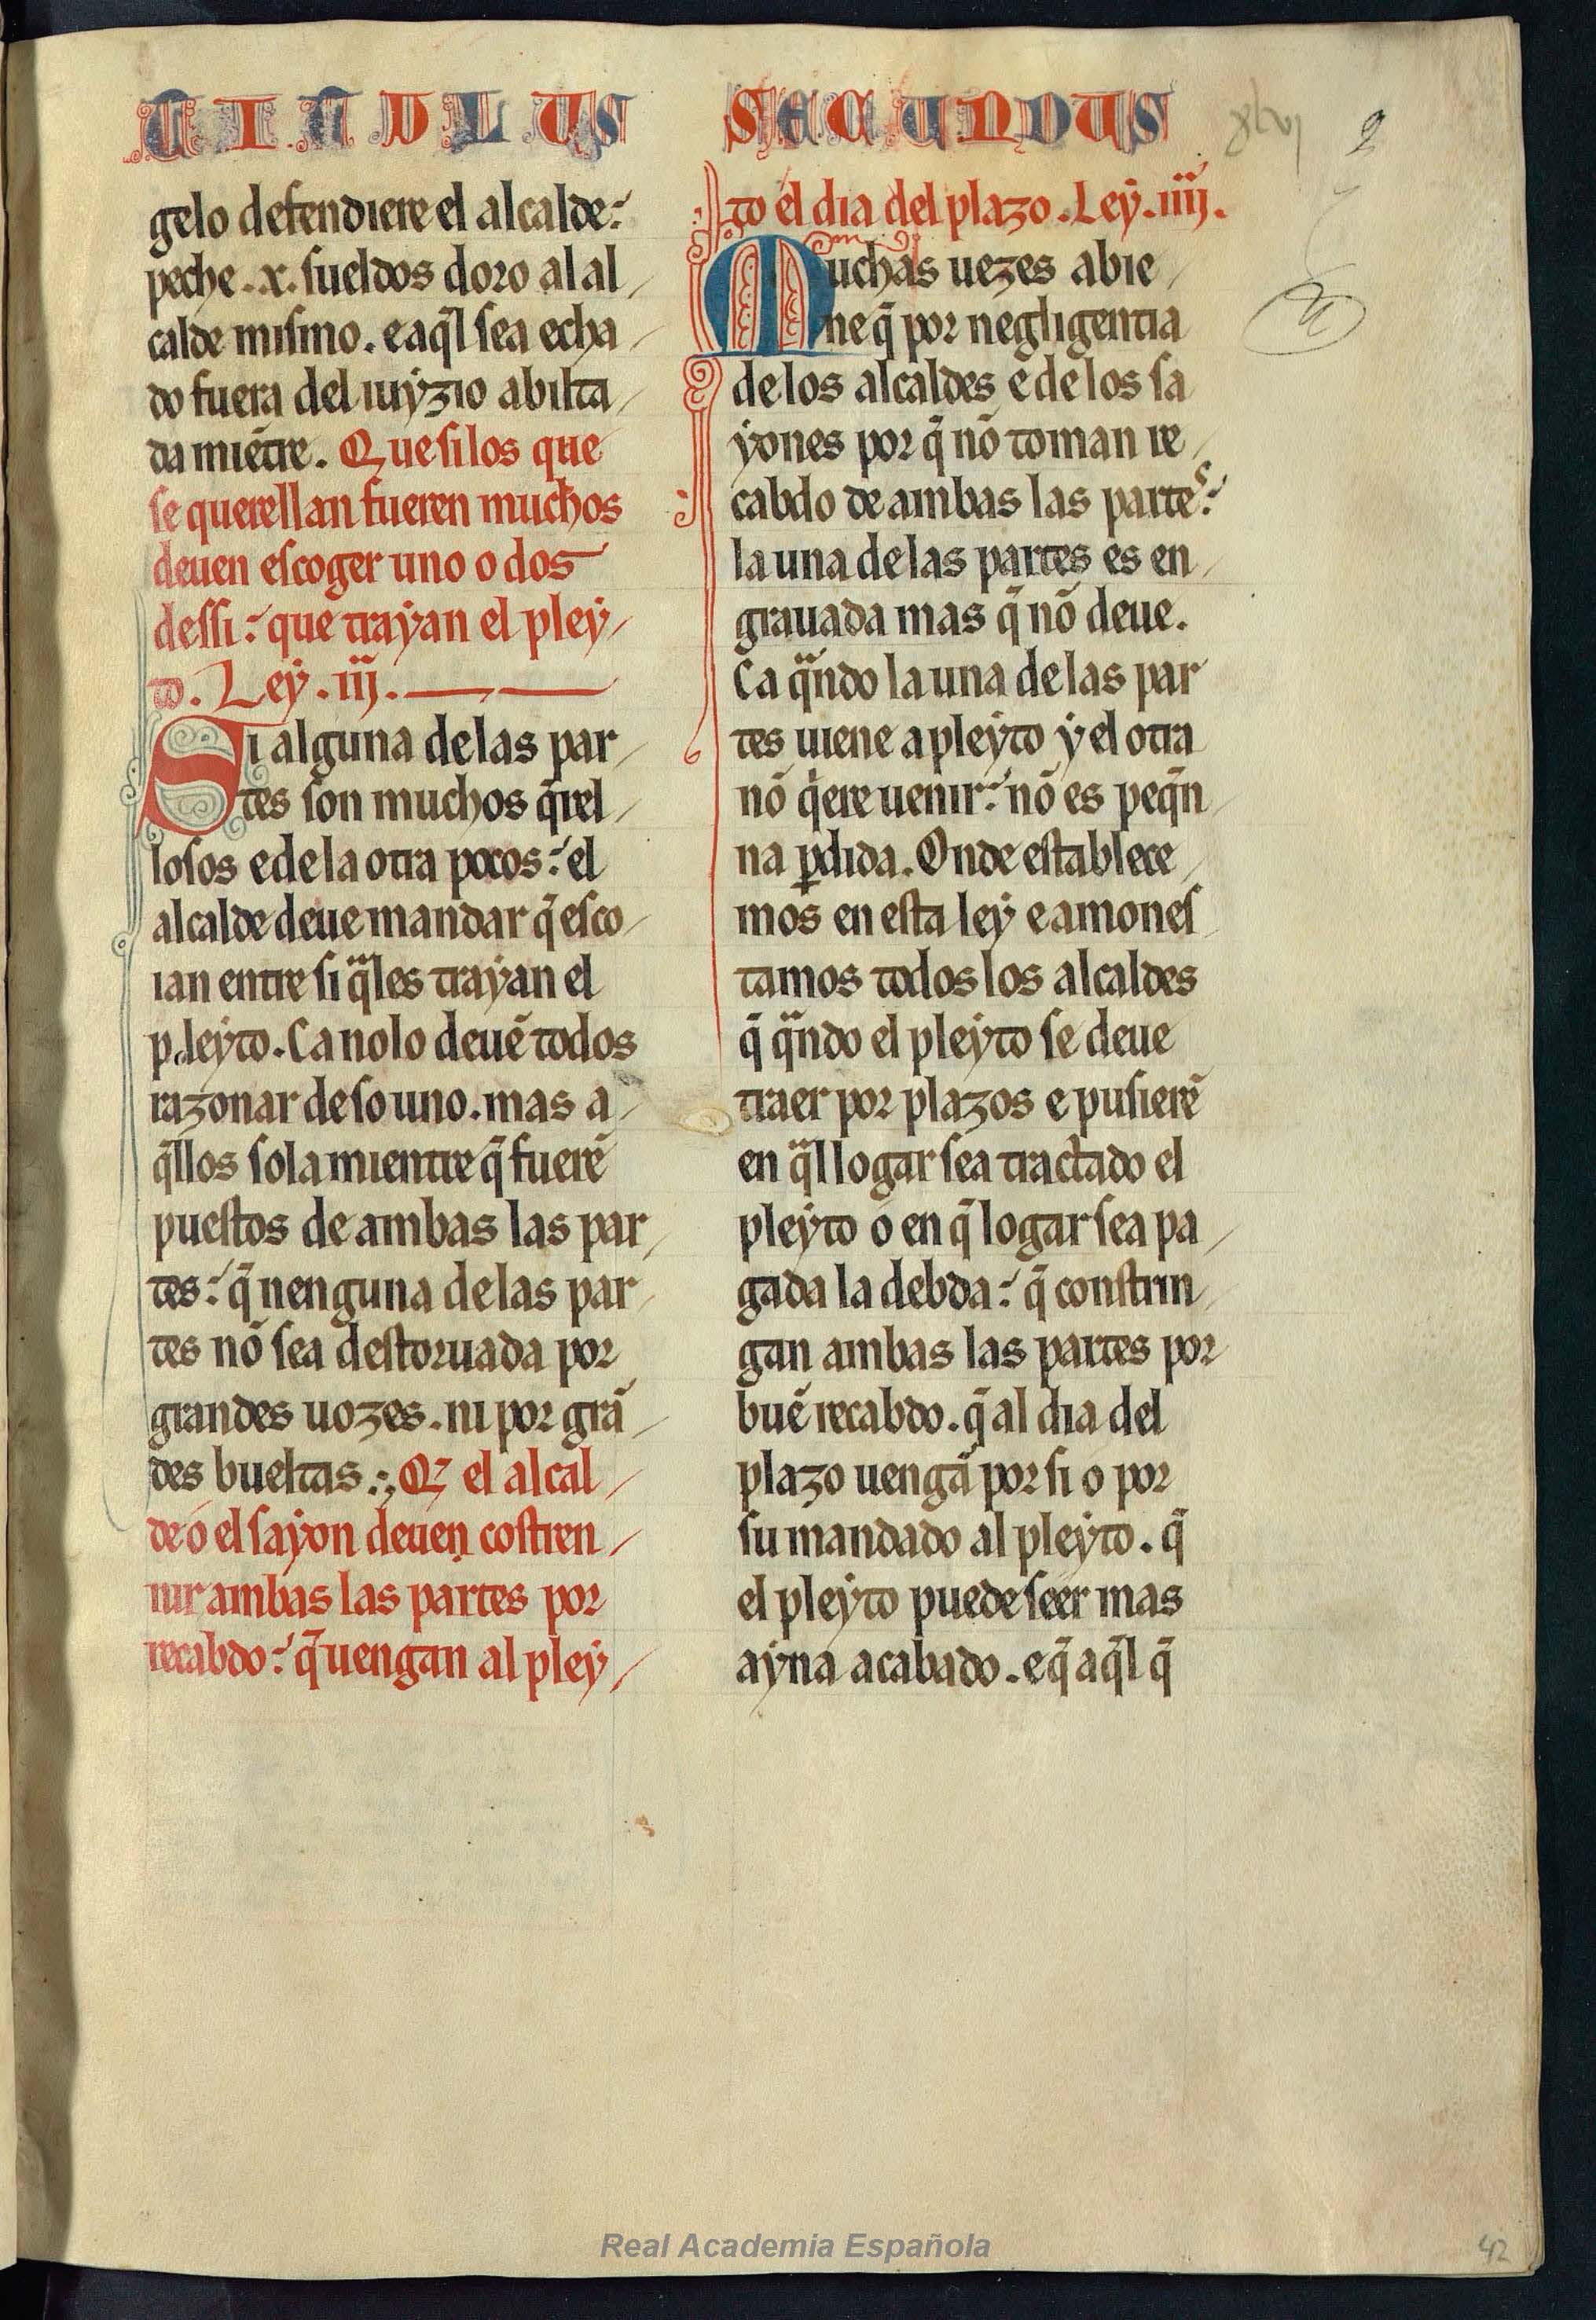 TITULUS SECUNDUS
gelo defendiere el alcalde:
peche .x. sueldos doro al al
calde mismo. e aq̃l sea echa
do fuera del iuyzio abilta
da miẽtre. Que si los que
se querellan fueren muchos
deuen escoger uno o dos
dessi: que trayan el pley
to. Ley .iij.
Si alguna delas par
tes son muchos q̃rel
losos e de la otra pocos: el
alcalde deue mandar q̃ esco
ian entre si q̈les trayan el
pleyto. Ca nolo deuẽ todos
razonar de so uno. mas a
q̃llos sola mientre q̃ fuerẽ
puestos de ambas las par
tes: q̃ nenguna de las par
tes nõ sea destoruada por
grandes uozes. ni por grã
des bueltas. Q̃ el alcal
de o el sayon deuen costren
nir ambas las partes por
recabdo: q̃ uengan al pley
to el dia del plazo. Ley .iiij.
Muchas uezes abie
ne q̃ por negligentia
de los alcaldes e de los sa
yones por q̃ nõ toman re
cabdo de ambas las partes:
la una de las partes es en
grauada mas q̃ nõ deue.
Ca q̈ndo la una de las par
tes uiene a pleyto y el otra
nõ q̇ere uenir: nõ es peq̃n
na ꝑdida. Onde establece
mos en esta ley e amones
tamos todos los alcaldes
q̃ q̈ndo el pleyto se deue
traer por plazos e pusierẽ
en q̈l logar sea tractado el
pleyto o en q̃ logar sea pa
gada la debda: q̃ constrin
gan ambas las partes por
buẽ recabdo. q̃ al dia del
plazo uengã por si o por
su mandado al pleyto. q̃
el pleyto puede seer mas
ayna acabado. e q̃ aq̃l q̃
Real Academia Española
42